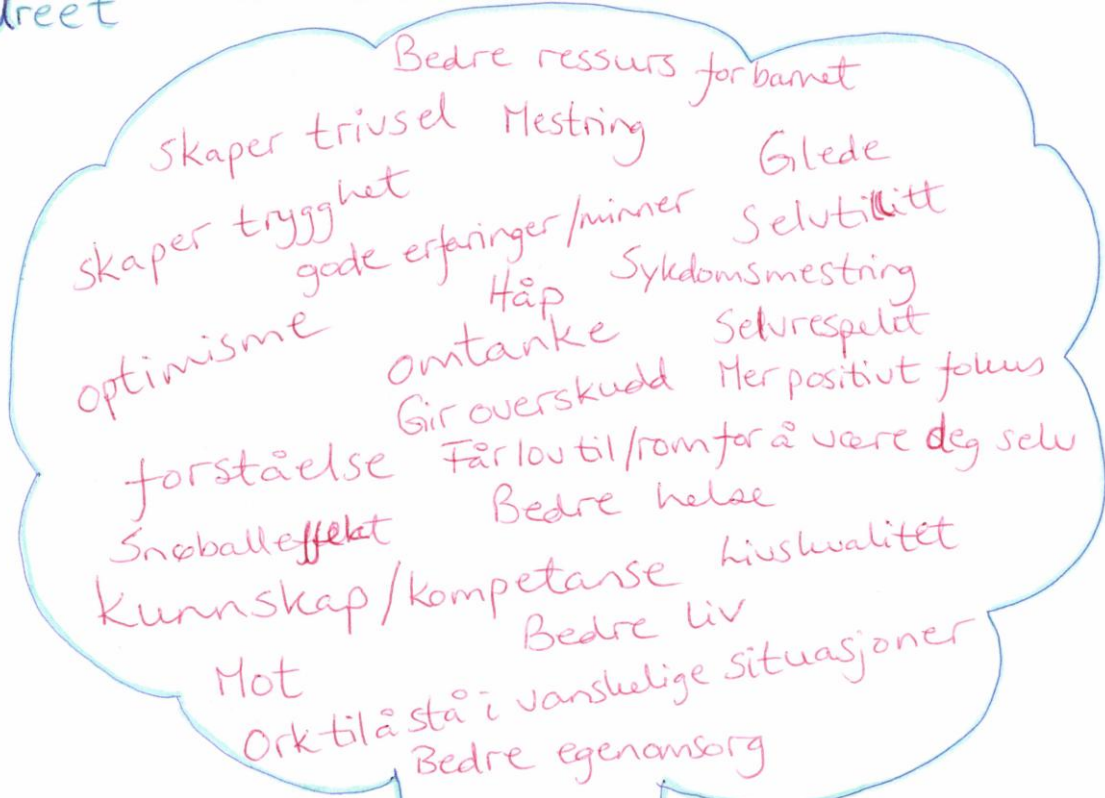 treet
Bedre ressurs for barnet
Skaper trivsel Mestring
Glede
Skaper trygghet
gode erfaringer/minner Selvtillitt
Håp Sykdomsmestring
optimisme omtanke Selvrespekt
Gir overskudd Mer positivt fokus
forståelse Får lov til/rom for å være deg selv
Snøballeffekt Bedre helse
kunnskap/kompetanse Livskvalitet
Bedre liv
Mot
Ork til å stå i vanskelige situasjoner
Bedre egenomsorg